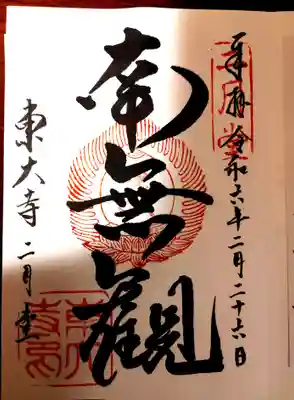 奉拝 令和六年二月二十六日
南無観
東大寺 二月堂